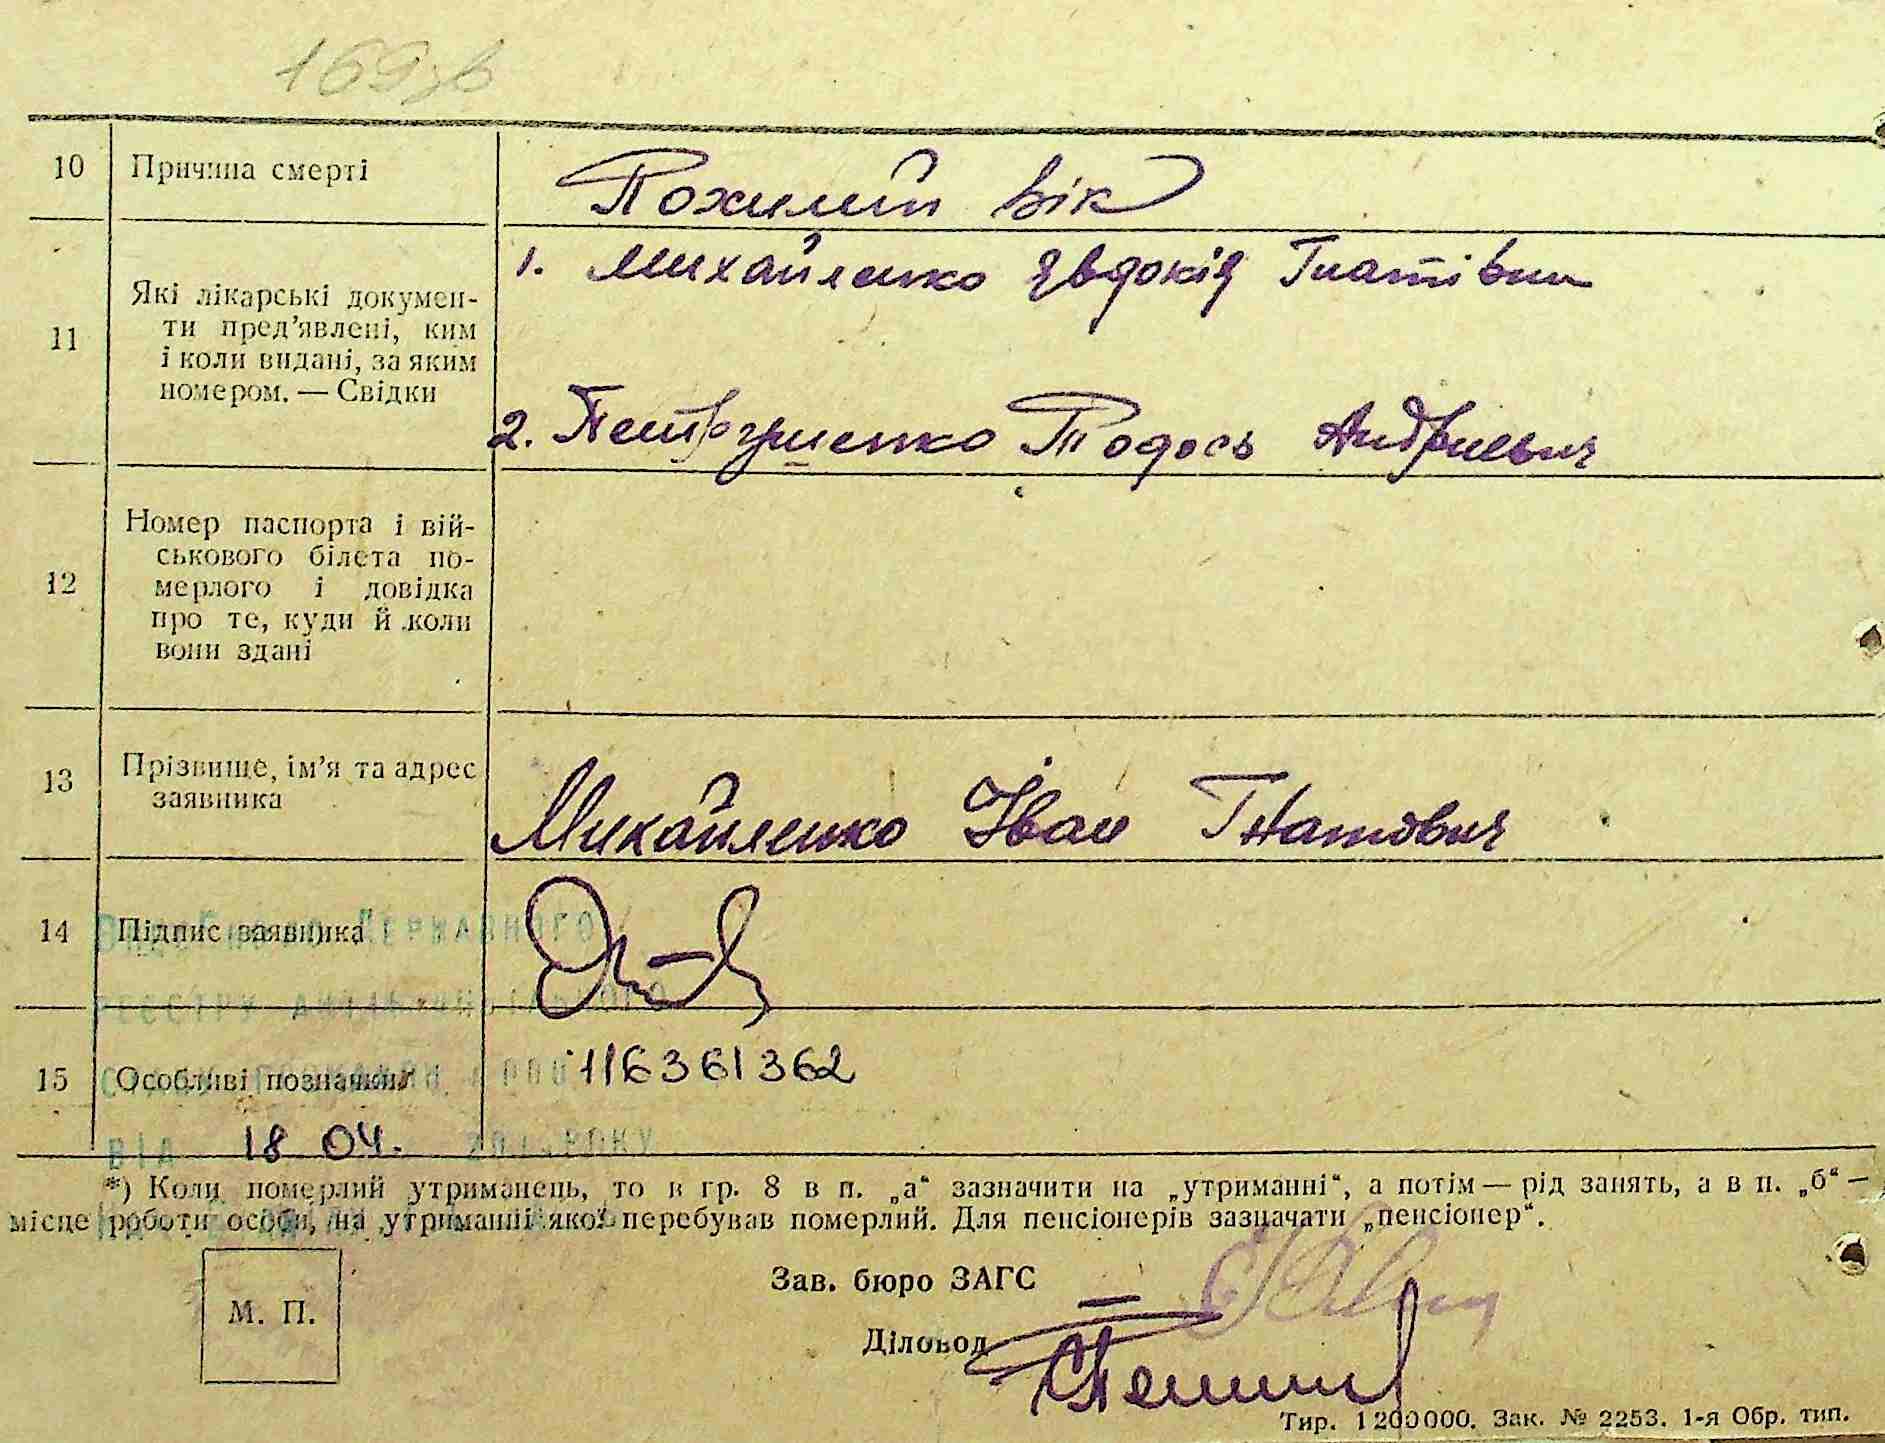 169зв
10 Причина смерті Похилий вік
11 Які лікарські докумен-
ти пред'явлені, ким
і коли видані, за яким
номером. — Свідки
1. Михайленко Явдокія Гнатівни
2. Петрушенко Тодось Андрієвич
12 Номер паспорта і вій-
ськового білета по-
мерлого і довідка
про те, куди й коли
вони здані
13 Прізвище, ім'я та адрес
заявника
Михайленко Іван Гнатович
14 Підпис заявника
ДЕРЖАВНОГО
РЕЄСТРУ АКТІВ ЦИВІЛЬНОГО
15 Особливі позначки 116361362
ВІД 18 04. РОКУ
*) Коли померлий утриманець, то в гр. 8 в п. „а“ зазначити на „утриманні“, а потім — рід занять, а в п. „б“ —
місце роботи особи, на утриманні якої перебував померлий. Для пенсіонерів зазначати „пенсіонер“.
Зав. бюро ЗАГС
М. П.
Діловод
Тир. 1200000. Зак. № 2253. 1-я Обр. тип.